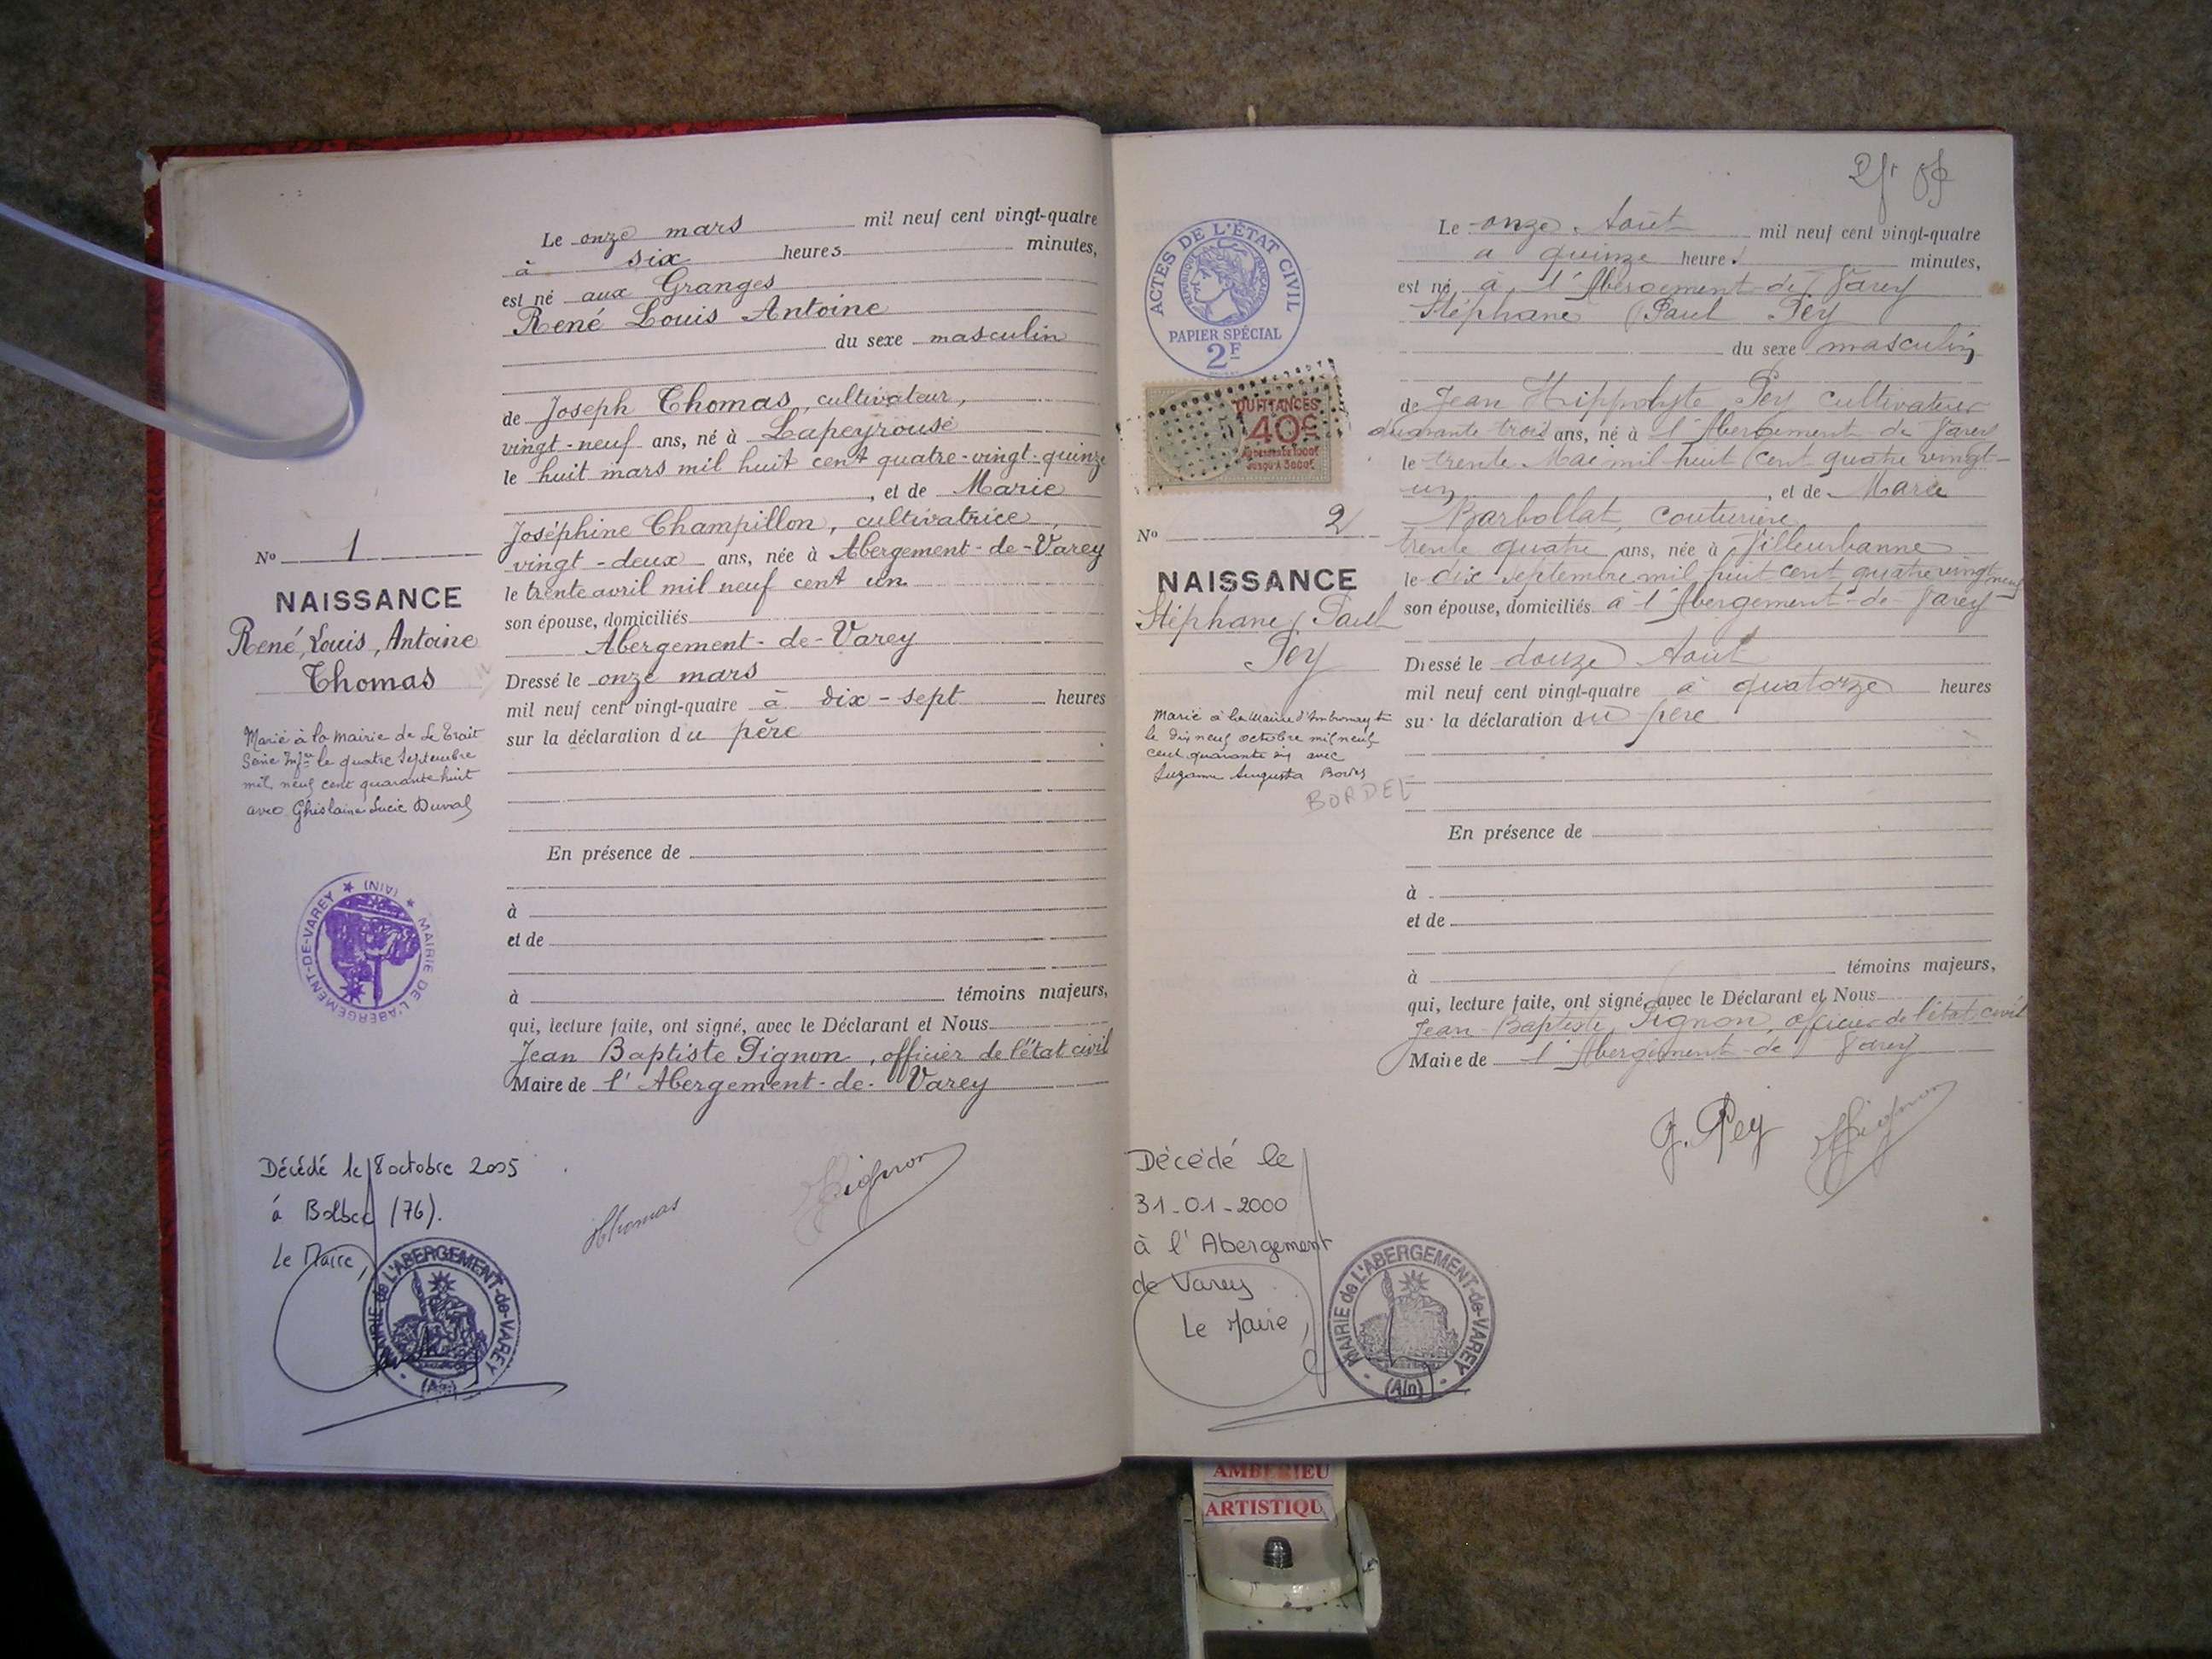 Le onze mars mil neuf cent vingt-quatre
à six heures minutes,
est né aux Granges
René Louis Antoine
du sexe masculin
de Joseph Thomas, cultivateur,
vingt-neuf ans, né à Lapeyrouse
le huit mars mil huit cent quatre-vingt-quinze
, et de Marie
Joséphine Champillon, cultivatrice,
vingt-deux ans, née à Abergement-de-Varey
le trente avril mil neuf cent un
son épouse, domiciliés
Abergement-de-Varey
Dressé le onze mars
mil neuf cent vingt-quatre à dix-sept heures
sur la déclaration du père
En présence de
à
et de
à témoins majeurs,
qui, lecture faite, ont signé, avec le Déclarant et Nous
Jean Baptiste Pignon, officier de l'état civil
Maire de l'Abergement-de-Varey
No 1
NAISSANCE
René, Louis, Antoine
Thomas
Marié à la mairie de Le Trait
Seine Infre le quatre Septembre
mil neuf cent quarante huit
avec Ghislaine Lucie Duval
MAIRIE DE L'ABERGEMENT-DE-VAREY (AIN)
Décédé le 8 octobre 2005
à Bolbec (76).
Le Maire,
MAIRIE de L'ABERGEMENT-de-VAREY
(Ain)
Thomas
Pignon
ACTES DE L'ÉTAT CIVIL
RÉPUBLIQUE FRANÇAISE
PAPIER SPÉCIAL
2F
QUITTANCES
40c
JUSQU'À 3000f
Le onze Août mil neuf cent vingt-quatre
à quinze heures minutes,
est né à l'Abergement de Varey
Stéphane Paul Pey
du sexe masculin
de Jean Hippolyte Pey cultivateur
quarante trois ans, né à l'Abergement de Varey
le trente Mai mil huit cent quatre vingt-
un, et de Marie
Barbollat, couturière
trente quatre ans, née à Villeurbanne
le dix septembre mil huit cent quatre vingt neuf
son épouse, domiciliés à l'Abergement-de-Varey
Dressé le douze Août
mil neuf cent vingt-quatre à quatorze heures
sur la déclaration du père
En présence de
à
et de
à témoins majeurs,
qui, lecture faite, ont signé, avec le Déclarant et Nous
Jean-Baptiste Pignon, officier de l'état civil
Maire de l'Abergement de Varey
No 2
NAISSANCE
Stéphane Paul
Pey
Marié à la Mairie d'Ambronay
le dix neuf octobre mil neuf
cent quarante six avec
Suzanne Augusta
BORDEL
J. Pey
Pignon
Décédé le
31-01-2000
à l'Abergement
de Varey
Le Maire,
MAIRIE de L'ABERGEMENT-de-VAREY
(Ain)
AMBERIEU
ARTISTIQU